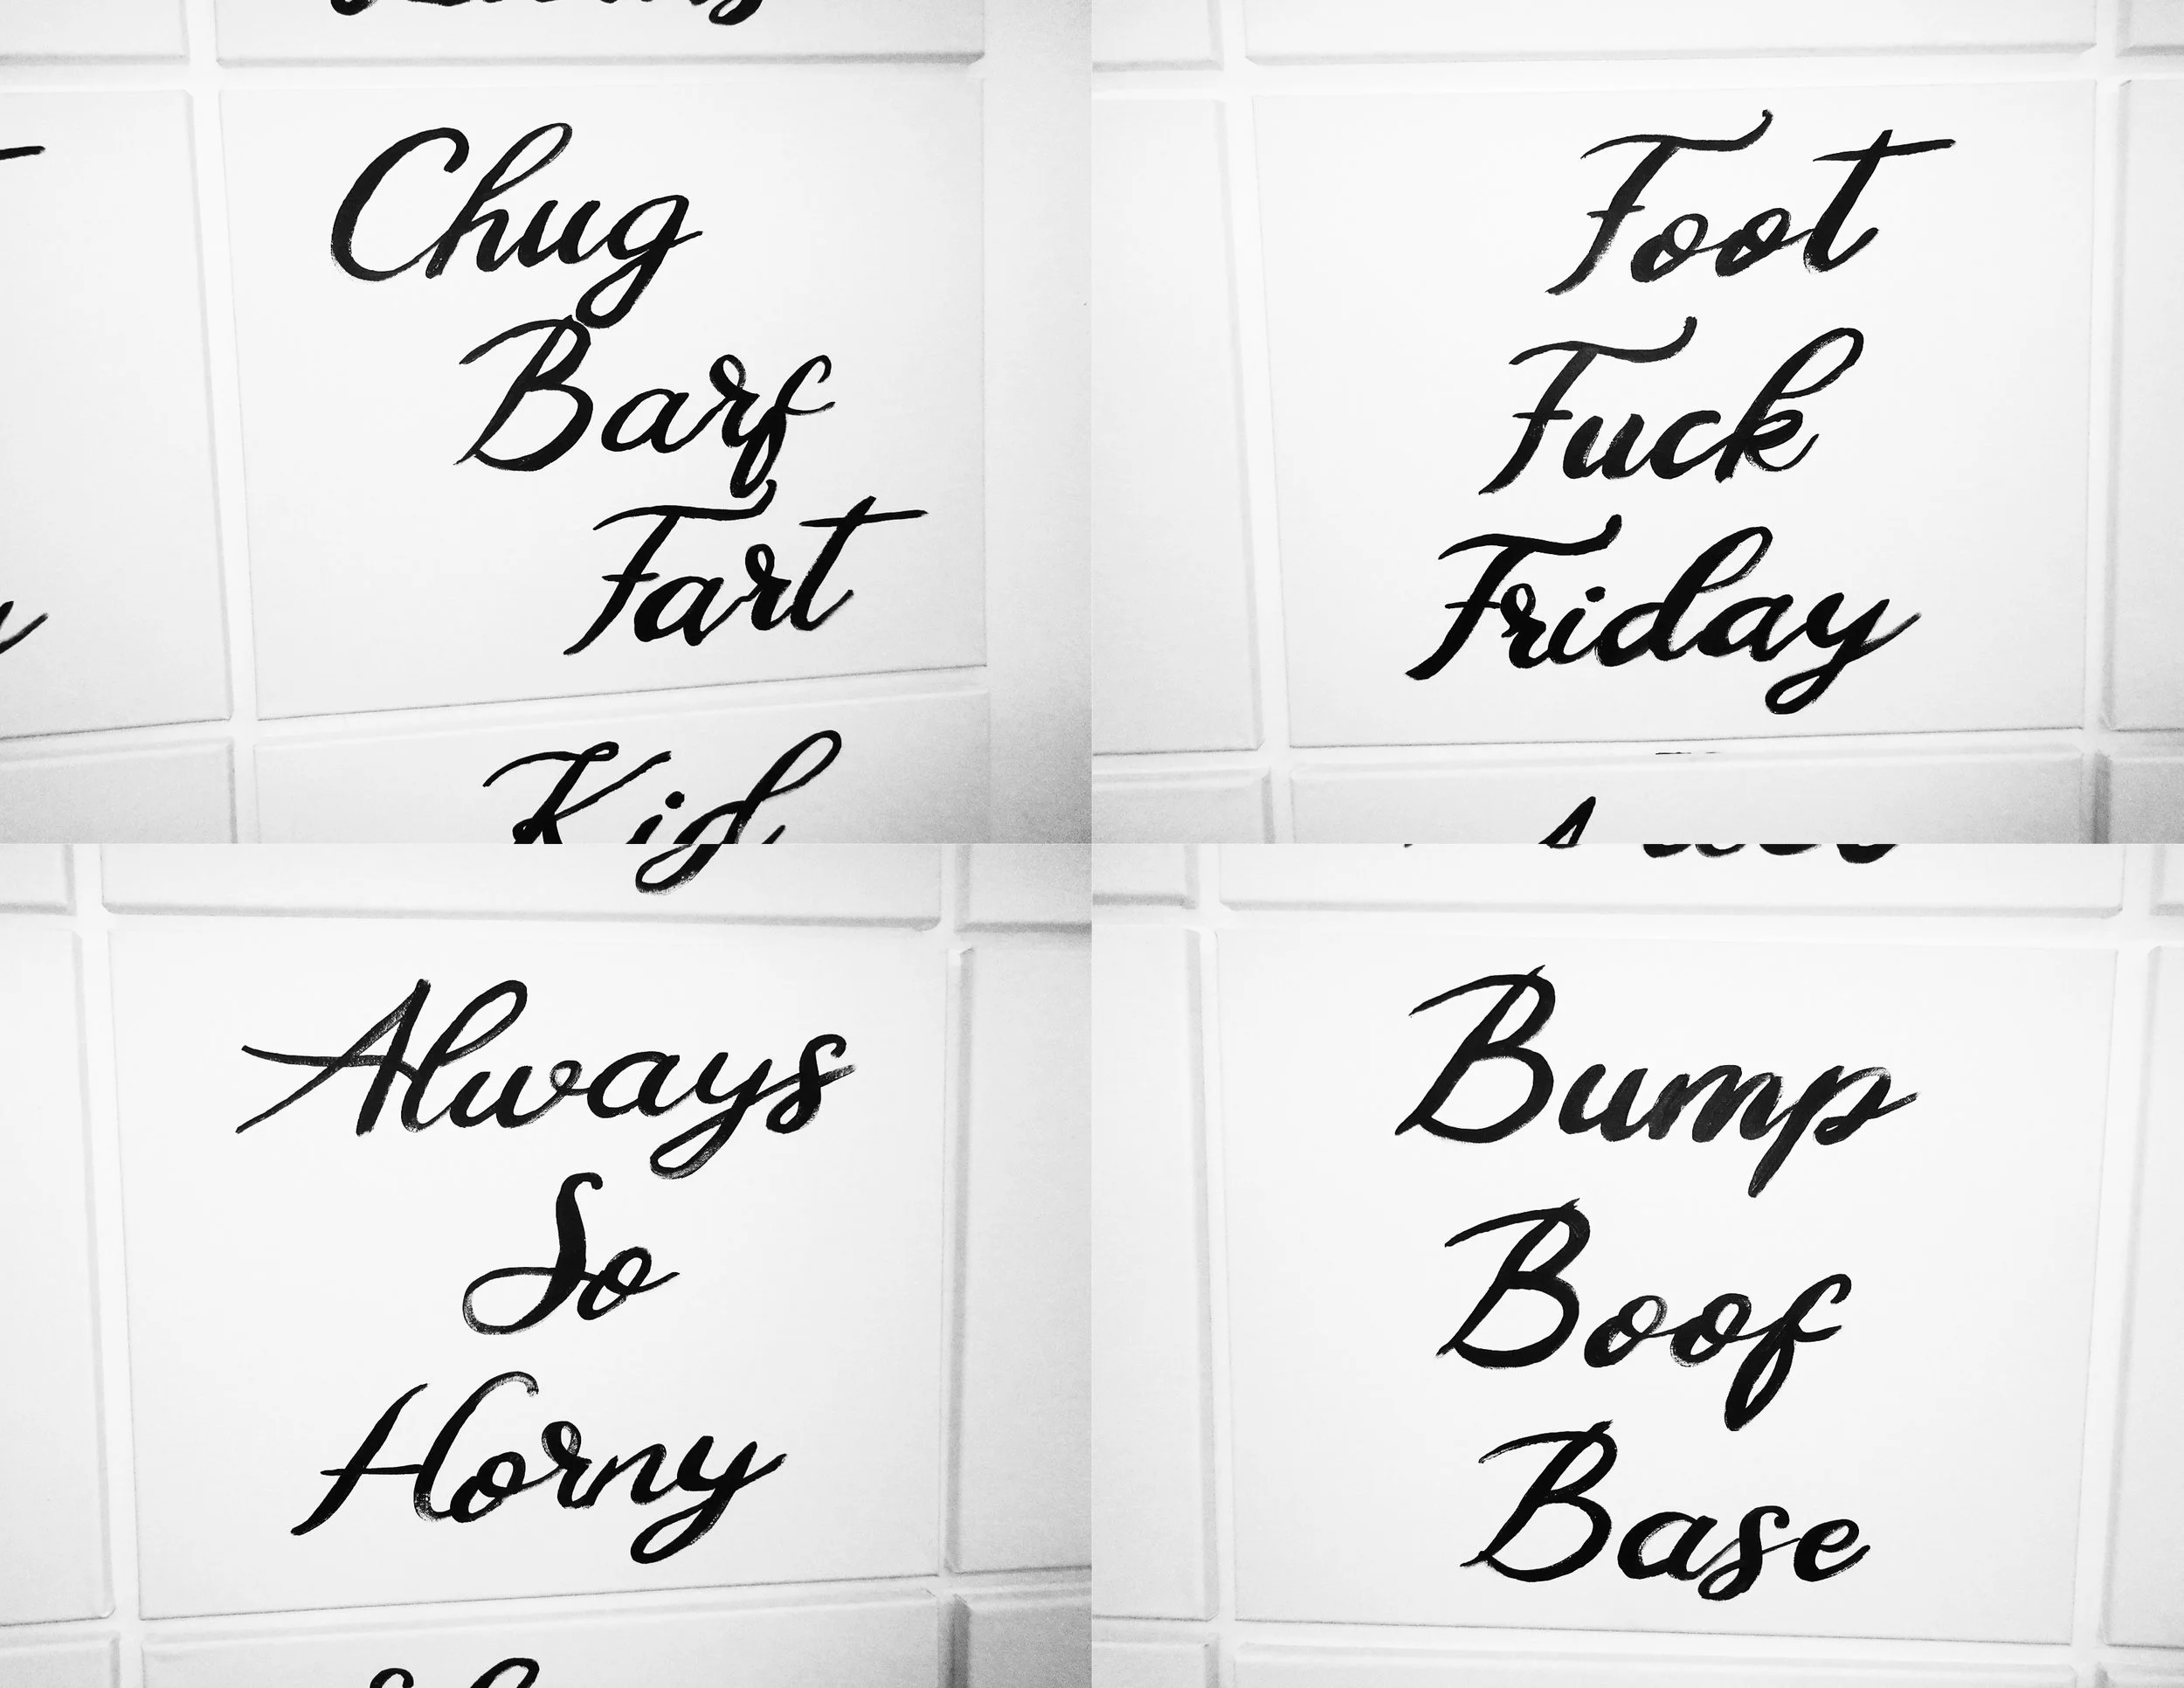 Chug
Barf
Fart
Kid
Foot
Fuck
Friday
Always
So
Horny
Bump
Boof
Base